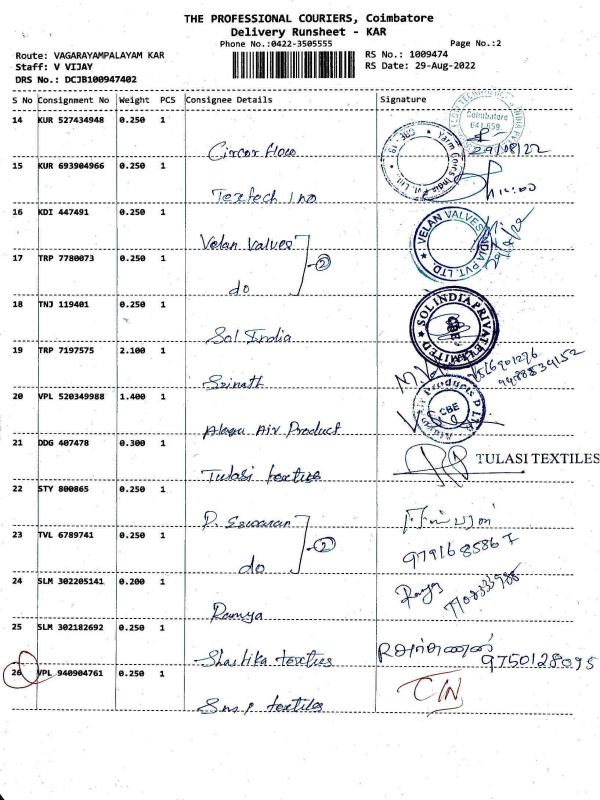 THE PROFESSIONAL COURIERS, Coimbatore
Delivery Runsheet - KAR
Phone No.:0422-3505555
Page No.:2
Route: VAGARAYAMPALAYAM KAR
RS No.: 1009474
Staff: V VIJAY
RS Date: 29-Aug-2022
DRS No.: DCJB100947402
S No Consignment No Weight PCS Consignee Details Signature
14 KUR 527434948 0.250 1
Circor flow
29/08/22
Coimbatore
641 659
15 KUR 693904966 0.250 1
Textech Ino
16 KDI 447491 0.250 1
Velan Valves
VELAN VALVES INDIA PVT. LTD.
17 TRP 7780073 0.250 1
do
2
18 TNJ 119401 0.250 1
Sol India
SOL INDIA PRIVATE LIMITED
CBE
19 TRP 7197575 2.100 1
Srinath
9488539152
20 VPL 520349988 1.400 1
Air Product
CBE
21 DDG 407478 0.300 1
Tulasi textiles
TULASI TEXTILES
22 STY 800865 0.250 1
P. Eswaran
23 TVL 6789741 0.250 1
do
2
9791685867
24 SLM 302205141 0.200 1
Ramya
25 SLM 302182692 0.250 1
Shastika textiles
9750128095
26 VPL 940904761 0.250 1
S.m.P. textiles